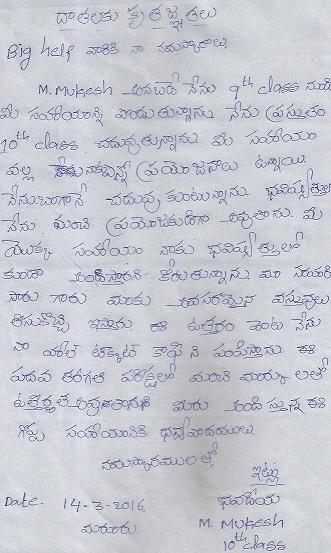 దాతలకు కృతజ్ఞతలు
Big help వారికి నా నమస్కారాలు.
M. Mukesh అనబడే నేను 9th class నుండి
మీ సహాయాన్ని పొందుతున్నాను. నేను ప్రస్తుతం
10th class చదువుతున్నాను. మీ సహాయం
వల్ల నాకెన్నో ప్రయోజనాలు ఉన్నాయి.
నేను బాగానే చదువు కుంటున్నాను. భవిష్యత్తులో
నేను మంచి ప్రయోజకుడిగా అవుతాను. మీ
యొక్క సహాయం నాకు భవిష్యత్తులో
కూడా అందిస్తారని కోరుతున్నాను. మా
సారు గారు మాకు అవసరమైన వస్తువులు
తీసుకొచ్చి ఇస్తారు. ఈ ఉత్తరం వెంట నేను
నా హాల్ టిక్కెట్ కాపీ ని పంపిస్తాను. ఈ
పదవ తరగతి పరీక్షలో మంచి మార్కులతో
ఉత్తీర్ణత మీరు అందిస్తున్న ఈ
గొప్ప సహాయానికి ధన్యవాదములు.
నమస్కారములతో,
ఇట్లు
Date. 14-3-2016 భవదీయ
M. Mukesh
10th class